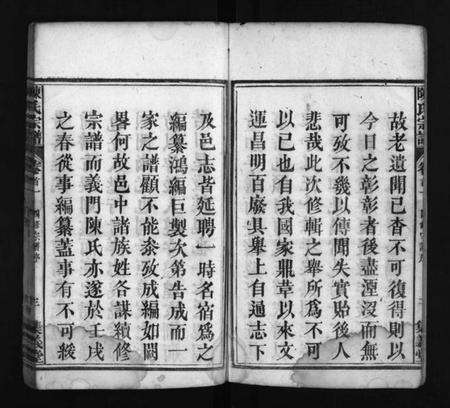 故老遺聞已杳不可復得則以
今日之彰彰者後盡湮沒而無
可攷不幾以傳聞失實貽後人
悲哉此次修輯之舉所為不可
以已也自我國家鼎革以來文
運昌明百廢具舉上自通志下
及邑志皆延聘一時名宿為之
編纂鴻編巨製次第告成而一
家之譜顧不能叅攷成編如闕
畧何故邑中諸族姓各謀續修
宗譜而義門陳氏亦遂於壬戌
之春從事編纂蓋事有不可緩
陳氏宗譜
卷首
三